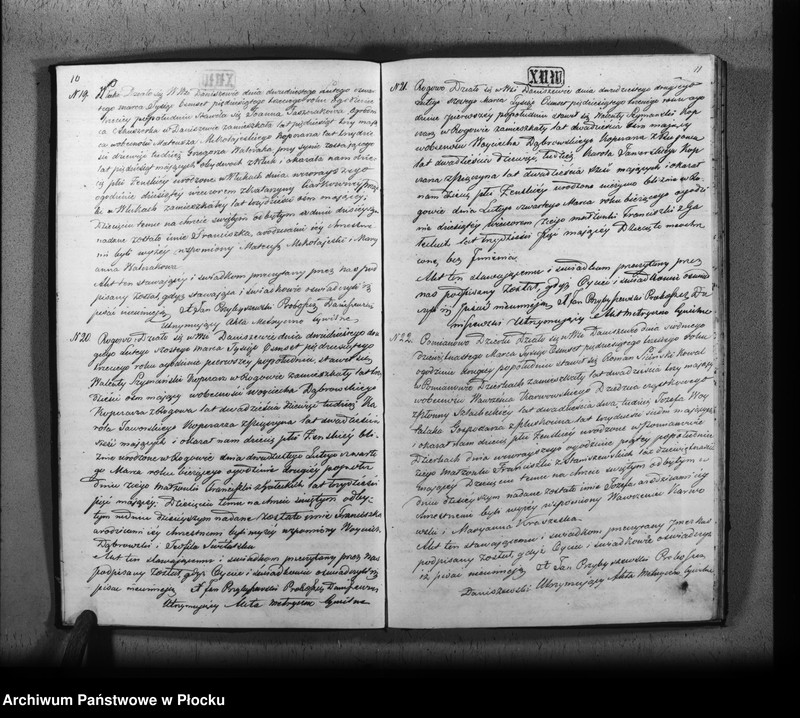 10
N 19. Wlukí Działo się W Wsi Daniszewie dnia dwudziestego
marca Tysiąc Osmset pięćdziesiątego trzeciego roku o godzinie
trzeciej popołudniu Stawiła się Joanna
w Daniszewie zamieszkała lat pięćdziesiąt trzy mająca
w obecności Mateusza Mikołajskiego Kopacza lat
dziewięć tudzież Grzegorza Walczaka
lat pięćdziesiąt mających obydwóch z Wluk i okazała nam dziecię
płci Żeńskiej urodzone w Wlukach dnia wczorajszego
o godzinie dziesiątej wieczorem z Katarzyny
w Wlukach zamieszkałej lat trzydzieści ośm mającej
Dziecięciu temu na chrzcie świętym odbytym w dniu dzisiejszym
nadane zostało imie Franciszka, a rodzicami jej chrzestnemi
byli wyżej wspomniony Mateusz Mikołajski i Mary
anna Walczakowa
Akt ten stawającej i świadkom przeczytany przez nas pod
pisany został gdyż stawająca i świadkowie oświadczyli iż
pisać nieumieją X Jan Przybyszewski Proboszcz Daniszewski
Utrzymujący Akta Metryczne Cywilne
N 20. Rogowo Działo się w Wsi Daniszewie dnia dwudziestego dru
giego Lutego szostego marca Tysiąc Osmset pięćdziesiątego
trzeciego roku o godzinie pierwszej popołudniu, stawił się
Walenty Szymański Kopacz w Rogowie zamieszkały lat dwa
dzieści ośm mający w obecności Wojciecha Dąbrowskiego
Kopacza z Rogowa lat dwadzieścia dziewięć tudzież Ka
rola Jaworskiego Kopacza z lat dwadzieścia
sześć mających i okazał nam dziecię płci Żeńskiej bli
źnie urodzone w Rogowie dnia dwudziestego Lutego czwarte
go Marca roku bieżącego o godzinie drugiej popołu
dniu z jego Małżonki Franciszki z lat trzydzieści
pięć mającej Dziecięciu temu na chrzcie świętym odby
tym w dniu dzisiejszym nadane zostało imie Franciszka
a rodzicami jej chrzestnemi byli wyżej wspomniony Wojciech
Dąbrowski i Teofila
Akt ten stawającemu i świadkom przeczytany przez nas
podpisany został gdyż Ojciec i świadkowie oświadczyli iż
pisać nieumieją X Jan Przybyszewski Proboszcz Daniszewski
Utrzymujący Akta metryczne Cywilne
11
N 21. Rogowo Działo się w Wsi Daniszewie dnia dwudziestego drugiego
Lutego szostego Marca Tysiąc Osmset pięćdziesiątego trzeciego roku o go
dzinie pierwszej popołudniu stawił się Walenty Szymański Kop
acz w Rogowie zamieszkały lat dwadzieścia ośm mający
w obecności Wojciecha Dąbrowskiego Kopacza z Rogowa
lat dwadzieścia dziewięć, tudzież Karola Jaworskiego Kop
acza z lat dwadzieścia sześć mających i okazał
nam dziecię płci Żeńskiej urodzone nieżywo bliźnie w Ro
gowie dnia Lutego czwartego Marca roku bieżącego o godzi
nie dziesiątej wieczorem z jego małżonki Franciszki z
lat trzydzieści pięć mającej Dziecię nieochrz
czone, bez Imienia
Akt ten stawającemu i świadkom przeczytany przez
nas podpisany został, gdyż Ojciec i świadkowie oświad
czyli iż pisać nieumieją, X Jan Przybyszewski Proboszcz Da
niszewski Utrzymujący Akta Metryczne Cywilne
N 22. Pomianowo Dzierki Działo się w Wsi Daniszewie dnia siodmego
dziewiętnastego Marca Tysiąc Osmset pięćdziesiątego trzeciego roku
o godzinie drugiej popołudniu stawił się Roman Kowal
w Pomianowie Dzierkach zamieszkały lat dwadzieścia trzy mający
w obecności Wawrzenca Karwowskiego Dziedzica cząstkowego
z Szlacheckiej lat dwadzieścia dwa, tudzież Jozefa Woy
talaka Gospodarza z lat trzydzieści siedm mających
i okazał nam dziecię płci Żeńskiej urodzone w Pomianowie
Dzierkach dnia wczorajszego o godzinie piątej popołudniu
z jego Małżonki Franciszki z lat
mającej Dziecięciu temu na chrzcie świętym odbytym w
dniu dzisiejszym nadane zostało imie Jozefa a rodzicami jej
chrzestnemi byli wyżej wspomniony Wawrzeniec Karwo
wski i Maryanna
Akt ten stawającemu i świadkom przeczytany przez nas
podpisany został, gdyż Ojciec i świadkowie oświadczyli
iż pisać nieumieją X Jan Przybyszewski Proboszcz
Daniszewski Utrzymujący Akta Metryczne Cywilne
Archiwum Państwowe w Płocku